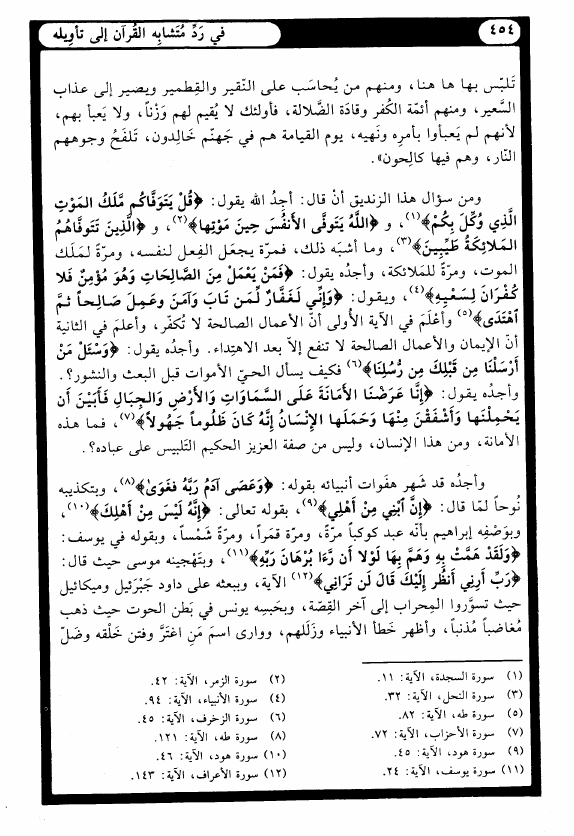 ٤٥٤
في رَدِّ مُتَشابِه القُرآن إلى تأويله
تَلبّس بها ها هنا، ومنهم من يُحاسَب على النَّقير والقِطمير ويصير إلى عذاب
السَّعير، ومنهم أئمّة الكُفر وقادَة الضَّلالة، فأولئك لا يُقيم لهم وَزْناً، ولا يَعبأ بهم،
لأنهم لم يَعبأوا بأمرِه ونَهيه، يوم القيامة هم في جَهنّم خَالِدون، تَلفَحُ وجوههم
النّار، وهم فيها كالِحون».
ومن سؤال هذا الزنديق أنْ قال: أجدُ الله يقول: ﴿قُلْ يَتَوَفَّاكُم مَّلَكُ المَوْتِ
الَّذِي وُكِّلَ بِكُمْ﴾(١)، و ﴿اللَّهُ يَتَوفَّى الأَنفُسَ حِينَ مَوْتِها﴾(٢)، و ﴿الَّذِينَ تَتَوفَّاهُمُ
المَلائكَةُ طَيِّبِينَ﴾(٣)، وما أشبَه ذلك، فمرة يجعَل الفِعل لنفسه، ومرةً لمَلَك
الموت، ومرةً للمَلائكة، وأجدُه يقول: ﴿فَمَنْ يَعْمَلْ مِنَ الصَّالِحَاتِ وَهُوَ مُؤْمِنٌ فَلا
كُفْرَانَ لِسَعْيِهِ﴾(٤)، ويقول: ﴿وَإنِّي لَغَفَّارٌ لِّمَن تَابَ وَآمَنَ وعَمِلَ صَالِحاً ثمَّ
اهْتَدَى﴾(٥) وأعْلَمَ في الآية الأُولى أنّ الأعمال الصالحة لا تُكفّر، وأعلمَ في الثانية
أنّ الإيمان والأعمال الصالحة لا تنفع إلاّ بعد الاهتِداء. وأجدُه يقول: ﴿وَسْئَلْ مَنْ
أَرْسَلْنَا مِن قَبْلِكَ مِن رُّسُلِنَا﴾(٦) فكيف يسأل الحيّ الأموات قبل البعث والنشور؟.
وأجدُه يقول: ﴿إِنَّا عَرَضْنَا الأَمَانَةَ عَلَى السَّمَاوَاتِ وَالأَرْضِ والجِبَالِ فَأَبَيْنَ أن
يَحْمِلْنَهَا وَأَشْفَقْنَ مِنْهَا وَحَمَلَها الإنْسَانُ إنَّهُ كَانَ ظَلُوماً جَهُولاً﴾(٧)، فما هذه
الأمانة، ومن هذا الإنسان، وليس من صفة العزيز الحكيم التَّلبيس على عباده؟.
وأجدُه قد شَهر هفوات أنبيائه بقوله: ﴿وَعَصَى آدَمُ رَبَّهُ فغَوَىٰ﴾(٨)، وبتكذيبه
نُوحاً لمّا قال: ﴿إِنَّ ابْنِي مِنْ أَهْلِي﴾(٩)، بقوله تعالى: ﴿إِنَّهُ لَيْسَ مِنْ أَهْلِكَ﴾(١٠)،
وبوَصْفِه إبراهيم بأنّه عبد كوكباً مرّةً، ومرة قمَراً، ومرّة شَمْساً، وبقوله في يوسف:
﴿وَلَقَدْ هَمَّتْ بِهِ وَهَمَّ بِهَا لَوْلا أن رَّءَا بُرْهَانَ رَبِّهِ﴾(١١)، وبتَهجينه موسى حيث قال:
﴿رَبِّ أرِنِي أَنظُر إِلَيْكَ قَالَ لَن تَرَانِي﴾(١٢) الآية، وببعثه على داود جَبْرَئيل وميكائيل
حيث تسوَّروا المِحراب إلى آخر القِصّة، وبحَبسِه يونس في بَطن الحوت حيث ذهب
مُغاضباً مُذنباً، وأظهر خَطأ الأنبياء وزَلَلهم، ووارى اسمَ مَنِ اغتَرَّ وفتن خَلْقه وضَلّ
(١) سورة السجدة، الآية: ١١.
(٢) سورة الزمر، الآية: ٤٢.
(٣) سورة النحل، الآية: ٣٢.
(٤) سورة الأنبياء، الآية: ٩٤.
(٥) سورة طه، الآية: ٨٢.
(٦) سورة الزخرف، الآية: ٤٥.
(٧) سورة الأحزاب، الآية: ٧٢.
(٨) سورة طه، الآية: ١٢١.
(٩) سورة هود، الآية: ٤٥.
(١٠) سورة هود، الآية: ٤٦.
(١١) سورة يوسف، الآية: ٢٤.
(١٢) سورة الأعراف، الآية: ١٤٣.